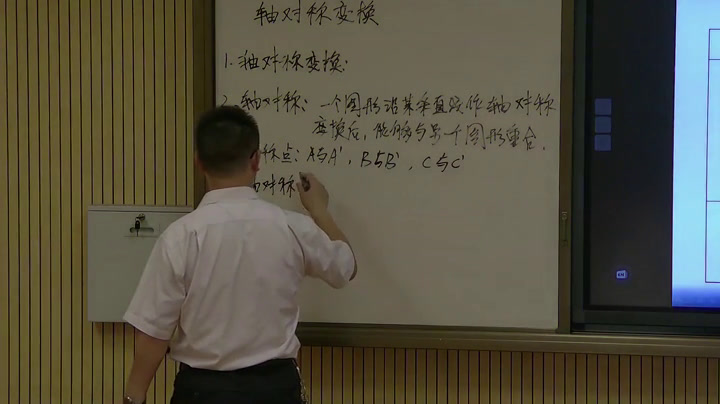 轴对称变换
1. 轴对称变换:
2. 轴对称: 一个图形沿某条直线作轴对称
变换后, 能够与另一个图形重合.
称点: A与A', B与B', C与C'
对称